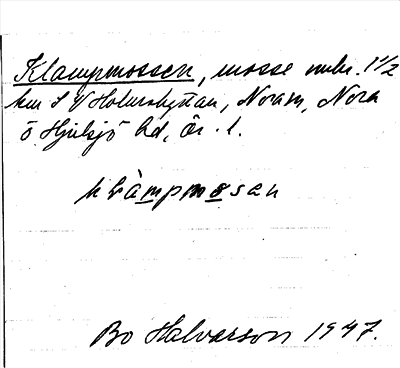 Klampmossen, mosse omkr. 1 1/2
km S V Holmshyttan, Noram, Nora
o. Hjulsjö bd, Ör. l.
klàmpmosan
Bo Halvarson 1947.